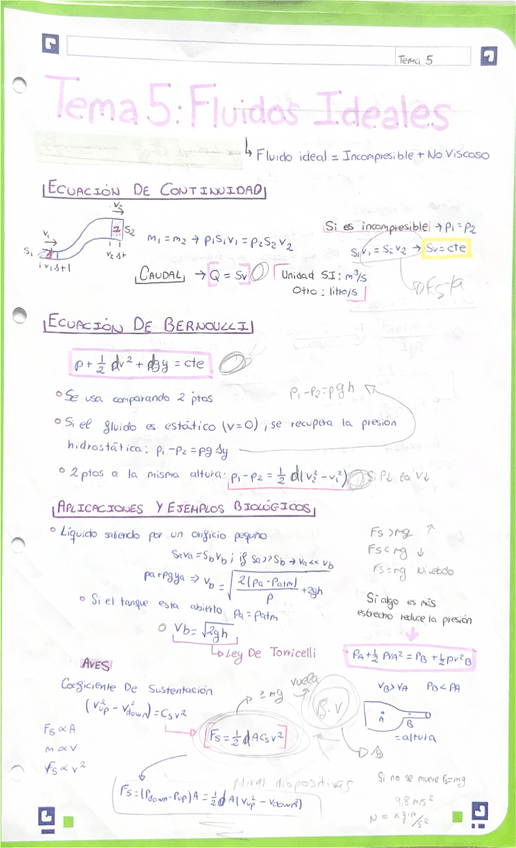 Tema 5
Tema 5: Fluidos Ideales
↳ Fluido ideal = Incompresible + No Viscoso
ECUACIÓN DE CONTINUIDAD
V₂
S₂
V₁
S₁
V₁Δt
V₂Δt
m₁ = m₂ → ρ₁S₁V₁ = ρ₂S₂V₂
Si es incompresible → ρ₁ = ρ₂
S₁V₁ = S₂V₂ → Sv = cte
CAUDAL → Q = Sv
Unidad SI: m³/s
Otro: litro/s
Esta
ECUACIÓN DE BERNOULLI
p + 1/2 dv² + dgy = cte
° Se usa comparando 2 ptos
p₁-p₂=ρgh
° Si el fluido es estático (v=0), se recupera la presión
hidrostática: p₁-p₂ = ρg Δy
° 2 ptos a la misma altura: p₁-p₂ = 1/2 d(v₂²-v₁²) Si P↓ la V↓
APLICACIONES Y EJEMPLOS BIOLÓGICOS
° Líquido saliendo por un orificio pequeño
SaVa = SbVb ; if Sa>>Sb → Va<<Vb
pa+ρgya ⇒ Vb = √(2(Pa-Patm)/ρ + 2gh)
° Si el tanque esta abierto Pa = Patm
° Vb = √2gh
↳ Ley De Torricelli
Fs > mg ↑
Fs < mg ↓
Fs = mg
Si algo es más
estrecho reduce la presión
PA + 1/2 ρVA² = PB + 1/2 ρV²B
VB > VA PB < PA
B
= altura
AVES
Coeficiente De Sustentación
(V²up - V²down) = CsV²
Fs ∝ A
m ∝ V
Fs ∝ v²
≥ mg
vuela
B.V
Fs = 1/2 d A Cs v²
Fs = (Pdown - Pup)A = 1/2 d A (V²up - V²down)
diapositivas
Si no se mueve Fs = mg
9,8 m/s²
N = kg·m/s²